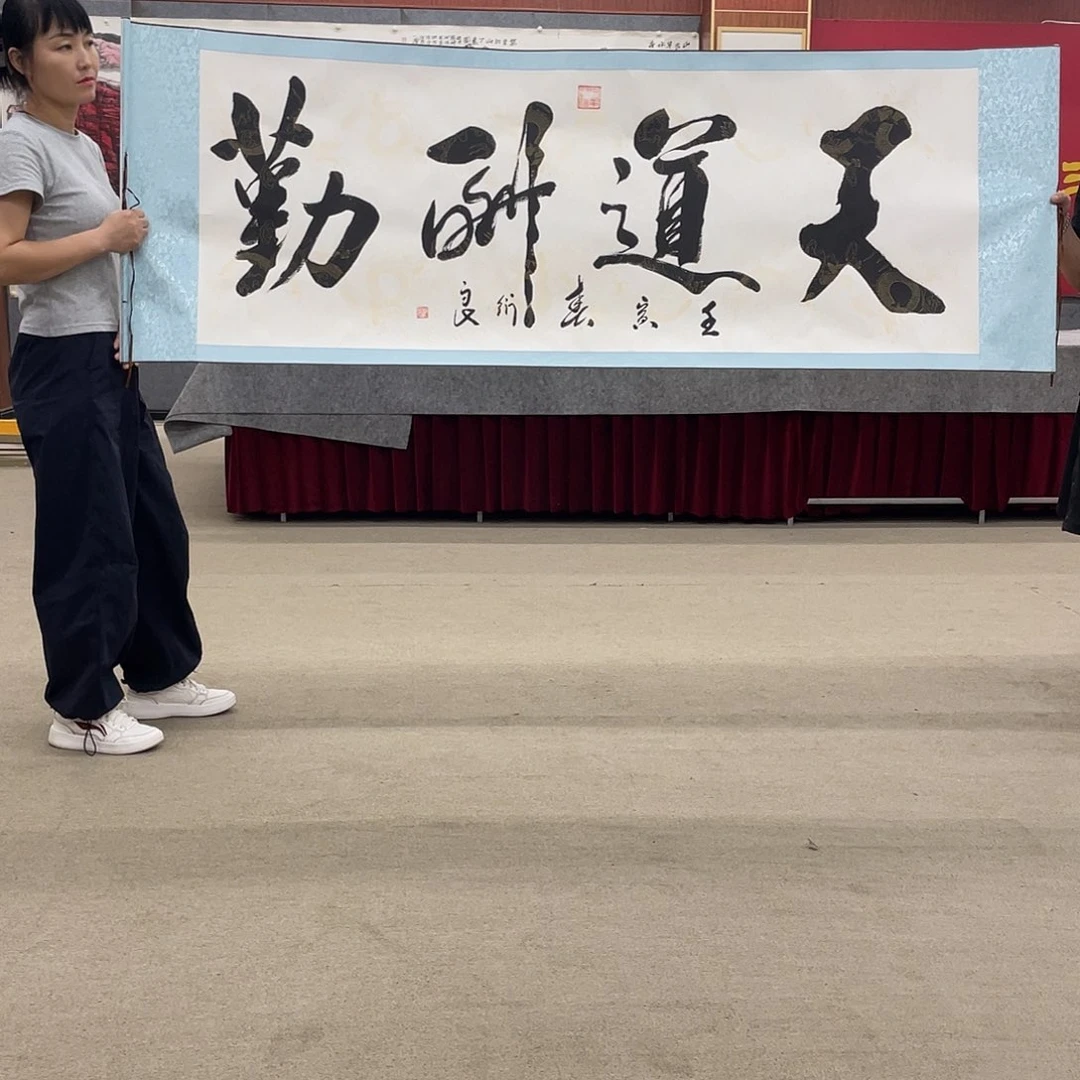 天道酬勤
壬寅春衍良